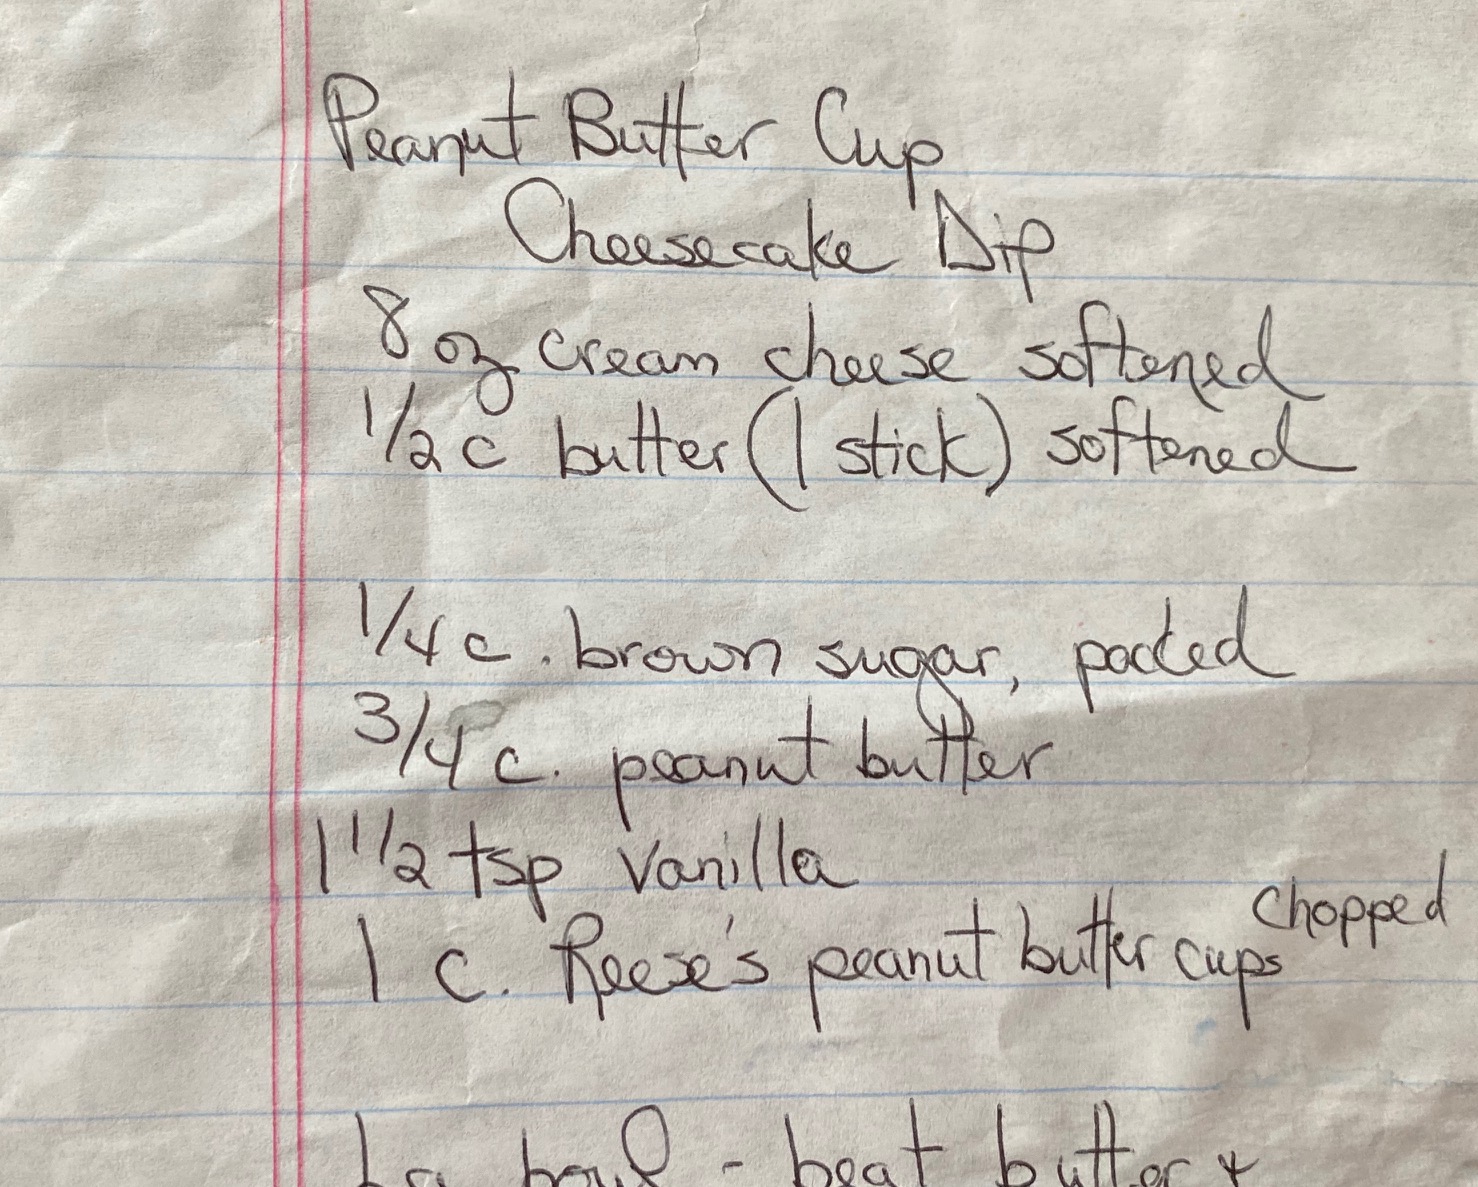 Peanut Butter Cup
Cheesecake Dip
8 oz cream cheese softened
1/2 c butter (1 stick) softened
1/4 c. brown sugar, packed
3/4 c. peanut butter
1 1/2 tsp vanilla
1 c. Reese's peanut butter cups chopped
Lg bowl - beat butter +